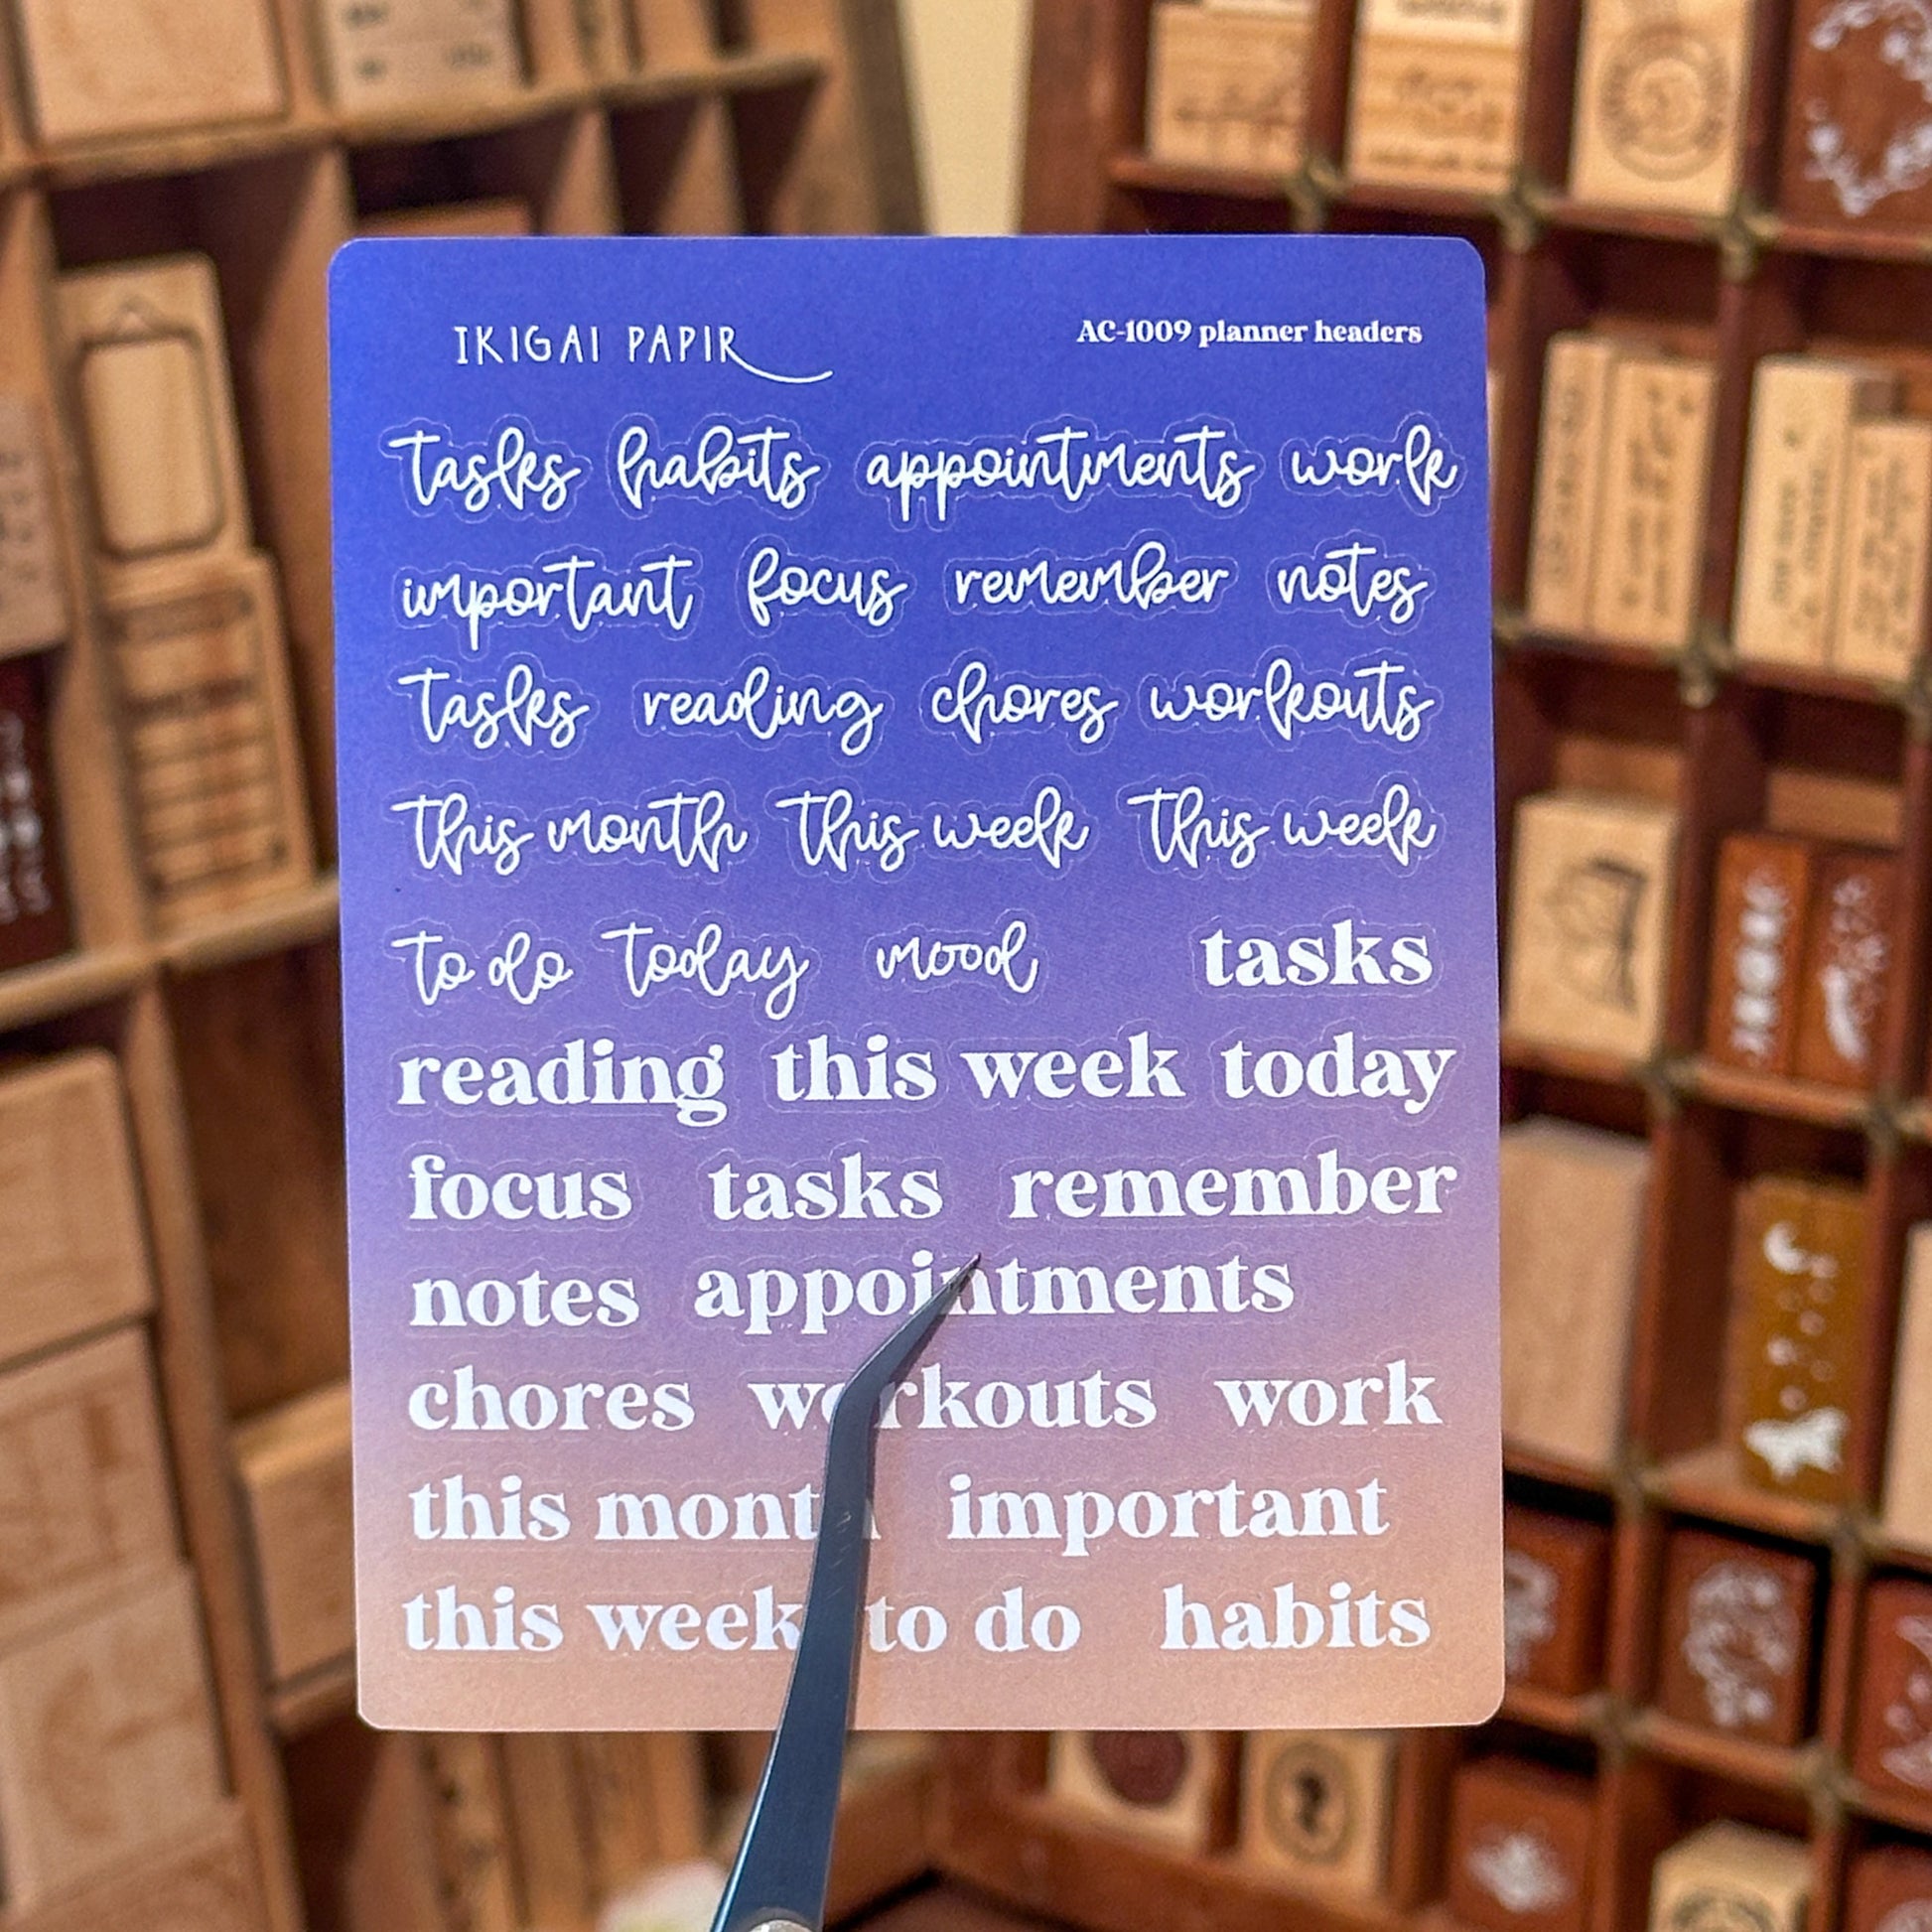 IKIGAI PAPIR
AC-1009 planner headers
tasks habits appointments work
important focus remember notes
tasks reading chores workouts
this month this week this week
to do today mood tasks
reading this week today
focus tasks remember
notes appointments
chores workouts work
this month important
this week to do habits